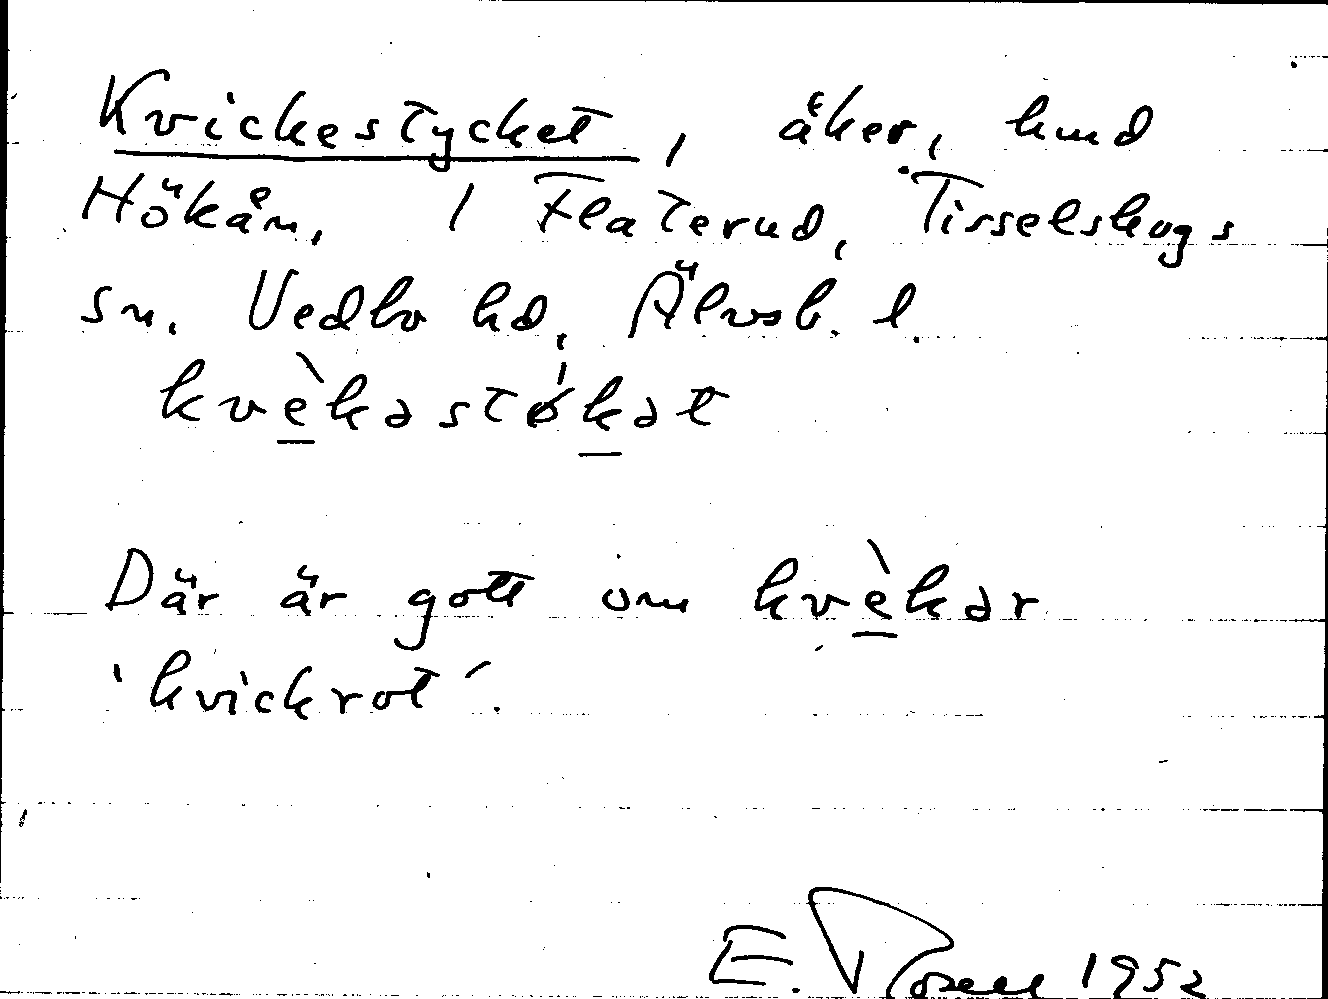 Kvickestycket, åker, hmd
Hökån, 1 Flaterud, Tisselskogs
sn. Vedbo hd, Älvsb. l.
kvèkastǿkat
Där är gott om kvèkar
'kvickrot'.
E. Rosell 1952